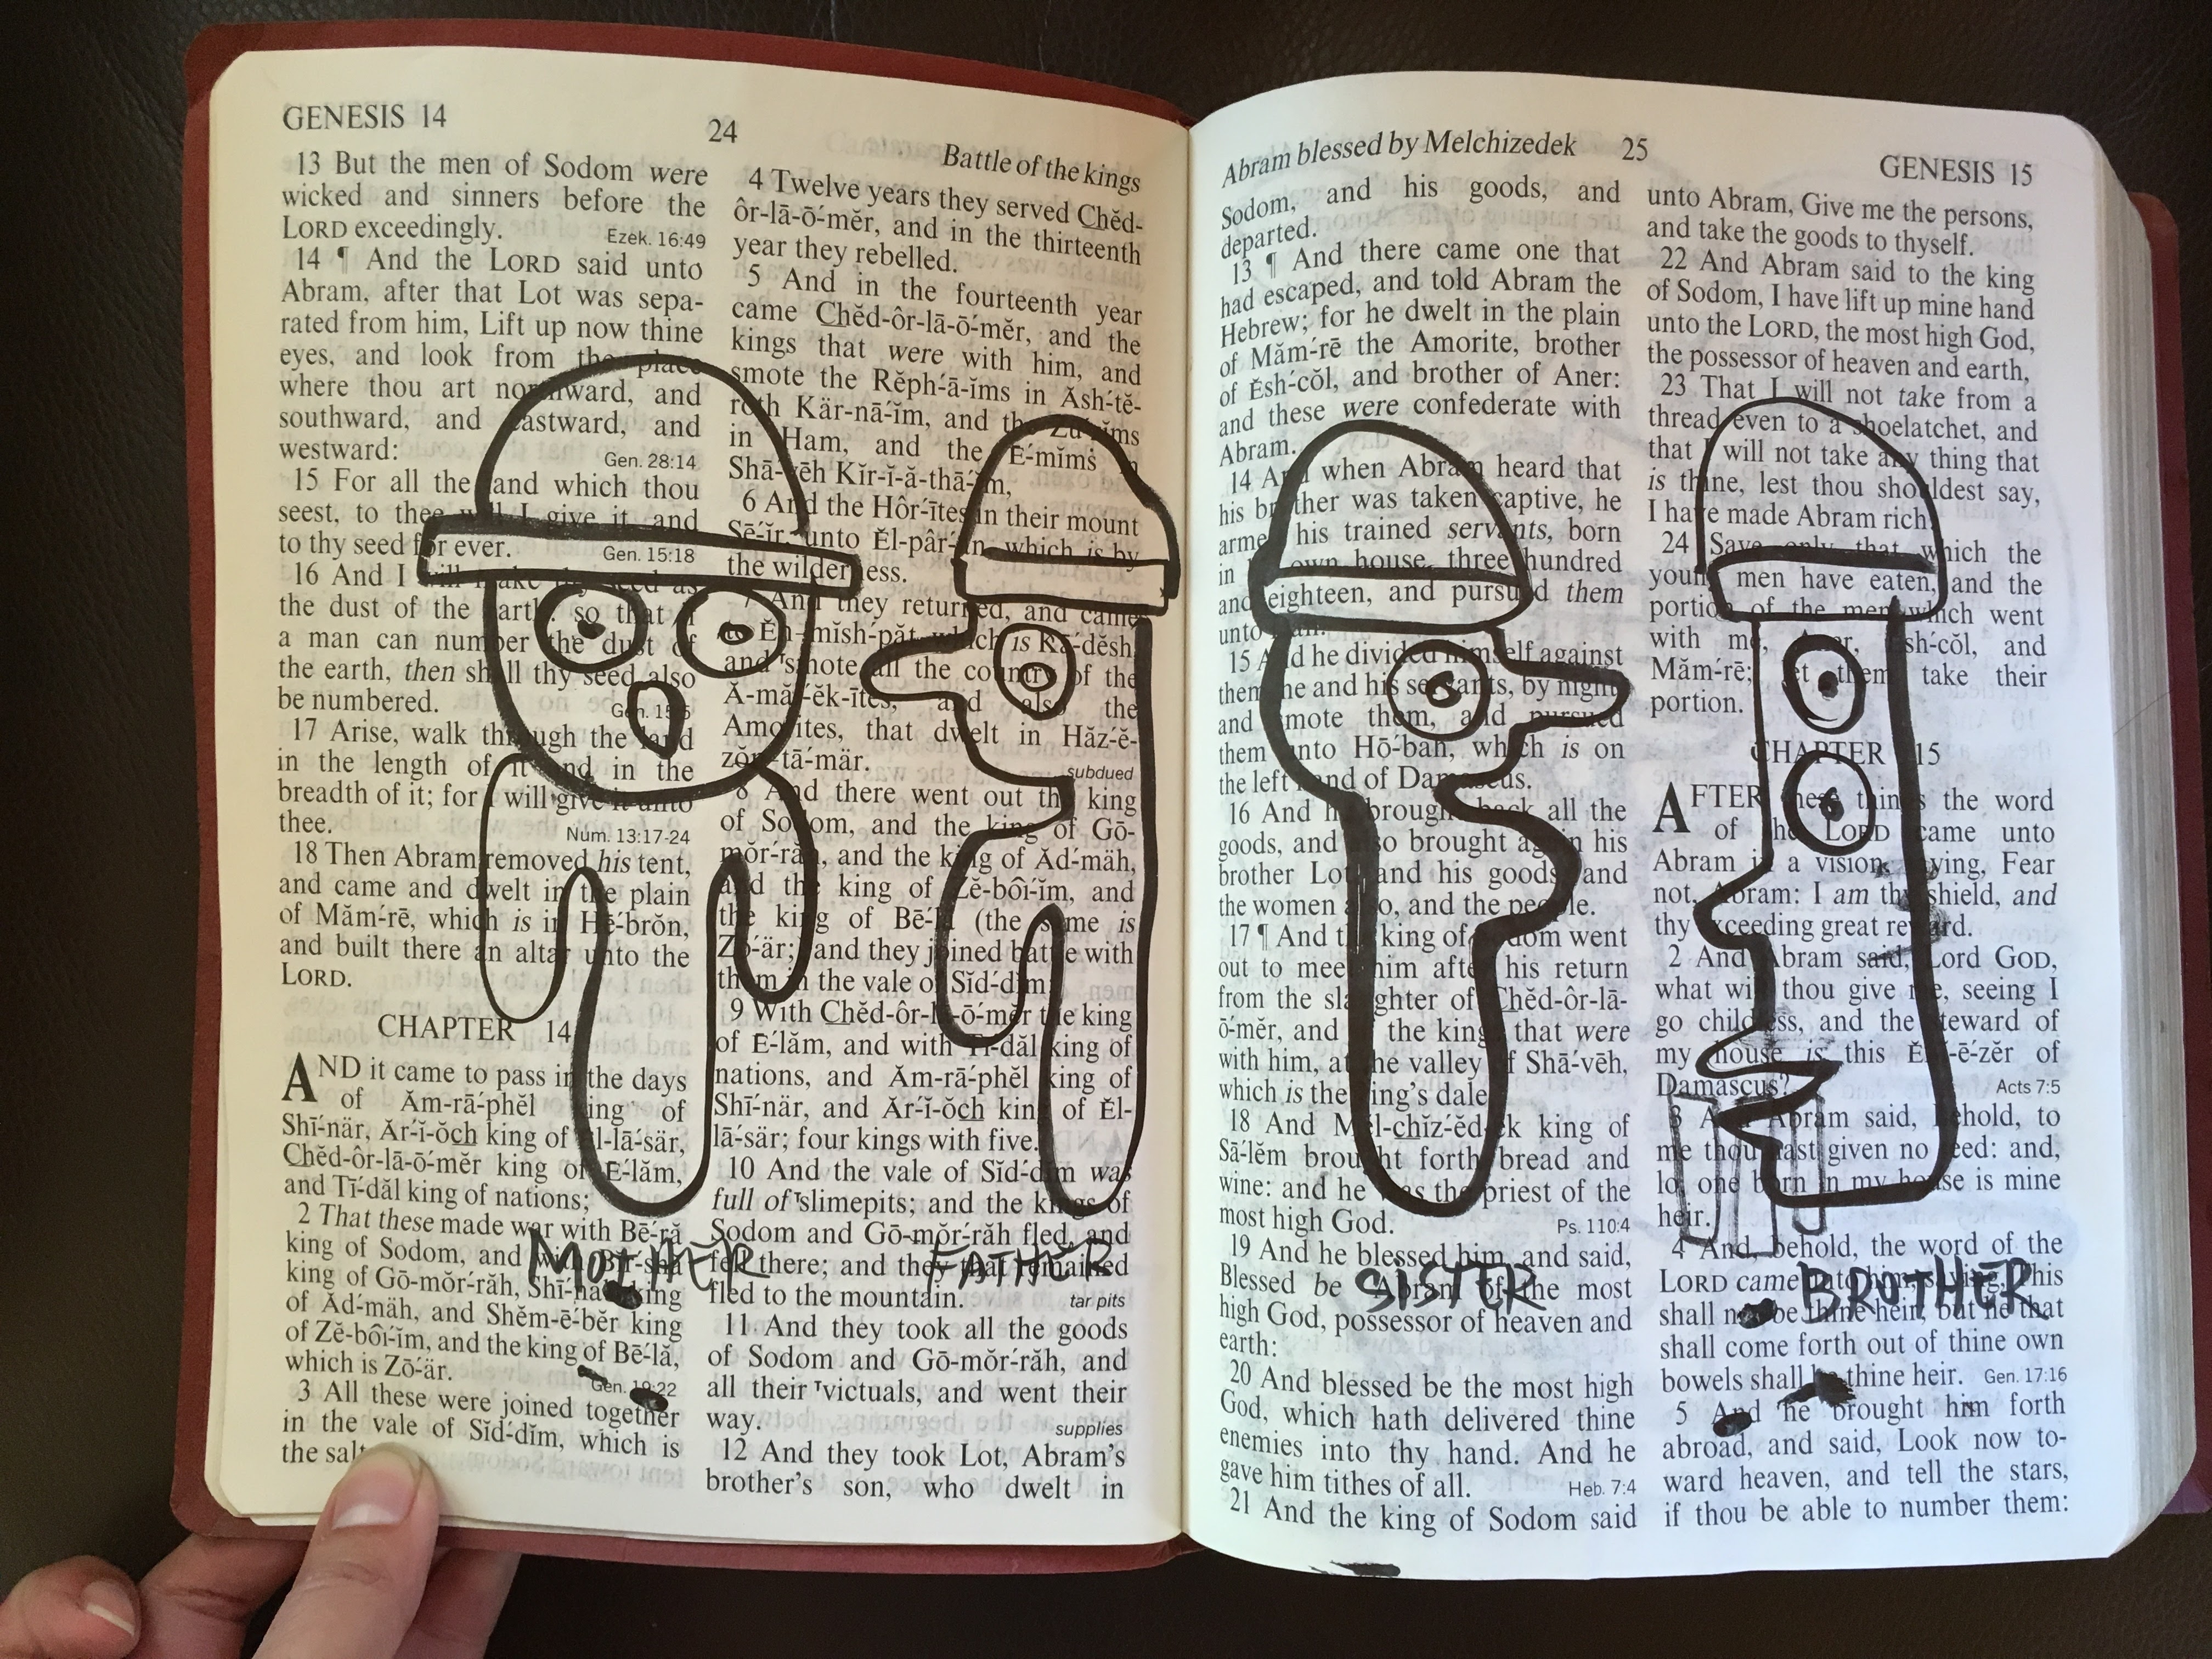 GENESIS 14
24
Battle of the kings
13 But the men of Sodom were
wicked and sinners before the
LORD exceedingly.
Ezek. 16:49
14 ¶ And the LORD said unto
Abram, after that Lot was sepa-
rated from him, Lift up now thine
eyes, and look from the place
where thou art northward, and
southward, and eastward, and
westward:
Gen. 28:14
15 For all the land which thou
seest, to thee will I give it, and
to thy seed for ever.
Gen. 15:18
16 And I will make thy seed as
the dust of the earth: so that if
a man can number the dust of
the earth, then shall thy seed also
be numbered.
Gen. 15:5
17 Arise, walk through the land
in the length of it and in the
breadth of it; for I will give it unto
thee.
Num. 13:17-24
18 Then Abram removed his tent,
and came and dwelt in the plain
of Măm´-rē, which is in Hē´-brŏn,
and built there an altar unto the
LORD.
CHAPTER 14
AND it came to pass in the days
of Ăm-rā´-phĕl king of
Shī´-när, Ăr´-ĭ-ŏch king of Ĕl-lā´-sär,
Chĕd-ôr-lā-ō´-mĕr king of Ē´-lăm,
and Tī´-dăl king of nations;
2 That these made war with Bē´-ră
king of Sodom, and with Bīr´-shă
king of Gō-mŏr´-răh, Shī´-năb king
of Ăd´-mäh, and Shĕm-ē´-bĕr king
of Zĕ-bôi´-ĭm, and the king of Bē´-lă,
which is Zō´-är.
Gen. 19:22
3 All these were joined together
in the vale of Sĭd´-dĭm, which is
the salt
4 Twelve years they served Chĕd-
ôr-lā-ō´-mĕr, and in the thirteenth
year they rebelled.
5 And in the fourteenth year
came Chĕd-ôr-lā-ō´-mĕr, and the
kings that were with him, and
smote the Rĕph´-ā-ĭms in Ăsh´-tĕ-
roth Kär-nā´-ĭm, and the Zū´-zĭms
in Ham, and the Ē´-mĭms in
Shā´-vēh Kĭr-ĭ-ă-thā´-ĭm,
6 And the Hôr´-ītes in their mount
Sē´-ĭr, unto Ĕl-pâr´-ăn, which is by
the wilderness.
7 And they returned, and came
to Ĕn-mĭsh´-păt, which is Kā´-dĕsh,
and smote all the country of the
Ă-măl´-ĕk-ītes, and also the
Amorites, that dwelt in Hăz´-ĕ-
zŏn-tā´-mär.
subdued
8 And there went out the king
of Sodom, and the king of Gō-
mŏr´-răh, and the king of Ăd´-mäh,
and the king of Zĕ-bôi´-ĭm, and
the king of Bē´-lă (the same is
Zō´-är;) and they joined battle with
them in the vale of Sĭd´-dĭm;
9 With Chĕd-ôr-lā-ō´-mĕr the king
of Ē´-lăm, and with Tī´-dăl king of
nations, and Ăm-rā´-phĕl king of
Shī´-när, and Ăr´-ĭ-ŏch king of Ĕl-
lā´-sär; four kings with five.
10 And the vale of Sĭd´-dĭm was
full of slimepits; and the kings of
Sodom and Gō-mŏr´-răh fled, and
fell there; and they that remained
fled to the mountain.
tar pits
11 And they took all the goods
of Sodom and Gō-mŏr´-răh, and
all their victuals, and went their
way.
supplies
12 And they took Lot, Abram's
brother's son, who dwelt in
MOTHER
FATHER
Abram blessed by Melchizedek
25
GENESIS 15
Sodom, and his goods, and
departed.
13 ¶ And there came one that
had escaped, and told Abram the
Hebrew; for he dwelt in the plain
of Măm´-rē the Amorite, brother
of Ĕsh´-cŏl, and brother of Aner:
and these were confederate with
Abram.
14 And when Abram heard that
his brother was taken captive, he
armed his trained servants, born
in his own house, three hundred
and eighteen, and pursued them
unto Dan.
15 And he divided himself against
them, he and his servants, by night,
and smote them, and pursued
them unto Hō´-bah, which is on
the left hand of Damascus.
16 And he brought back all the
goods, and also brought again his
brother Lot, and his goods, and
the women also, and the people.
17 ¶ And the king of Sodom went
out to meet him after his return
from the slaughter of Chĕd-ôr-lā-
ō´-mĕr, and the kings that were
with him, at the valley of Shā´-vēh,
which is the king's dale.
18 And Mĕl-chĭz´-ĕd-ĕk king of
Sā´-lĕm brought forth bread and
wine: and he was the priest of the
most high God.
Ps. 110:4
19 And he blessed him, and said,
Blessed be Abram of the most
high God, possessor of heaven and
earth:
20 And blessed be the most high
God, which hath delivered thine
enemies into thy hand. And he
gave him tithes of all.
Heb. 7:4
21 And the king of Sodom said
unto Abram, Give me the persons,
and take the goods to thyself.
22 And Abram said to the king
of Sodom, I have lift up mine hand
unto the LORD, the most high God,
the possessor of heaven and earth,
23 That I will not take from a
thread even to a shoelatchet, and
that I will not take any thing that
is thine, lest thou shouldest say,
I have made Abram rich:
24 Save only that which the
young men have eaten, and the
portion of the men which went
with me, Aner, Ĕsh´-cŏl, and
Măm´-rē; let them take their
portion.
CHAPTER 15
AFTER these things the word
of the LORD came unto
Abram in a vision, saying, Fear
not, Abram: I am thy shield, and
thy exceeding great reward.
2 And Abram said, Lord GOD,
what wilt thou give me, seeing I
go childless, and the steward of
my house is this Ĕl-ē-ē´-zĕr of
Damascus?
Acts 7:5
3 And Abram said, Behold, to
me thou hast given no seed: and,
lo, one born in my house is mine
heir.
4 And, behold, the word of the
LORD came unto him, saying, This
shall not be thine heir; but he that
shall come forth out of thine own
bowels shall be thine heir.
Gen. 17:16
5 And he brought him forth
abroad, and said, Look now to-
ward heaven, and tell the stars,
if thou be able to number them:
SISTER
BROTHER